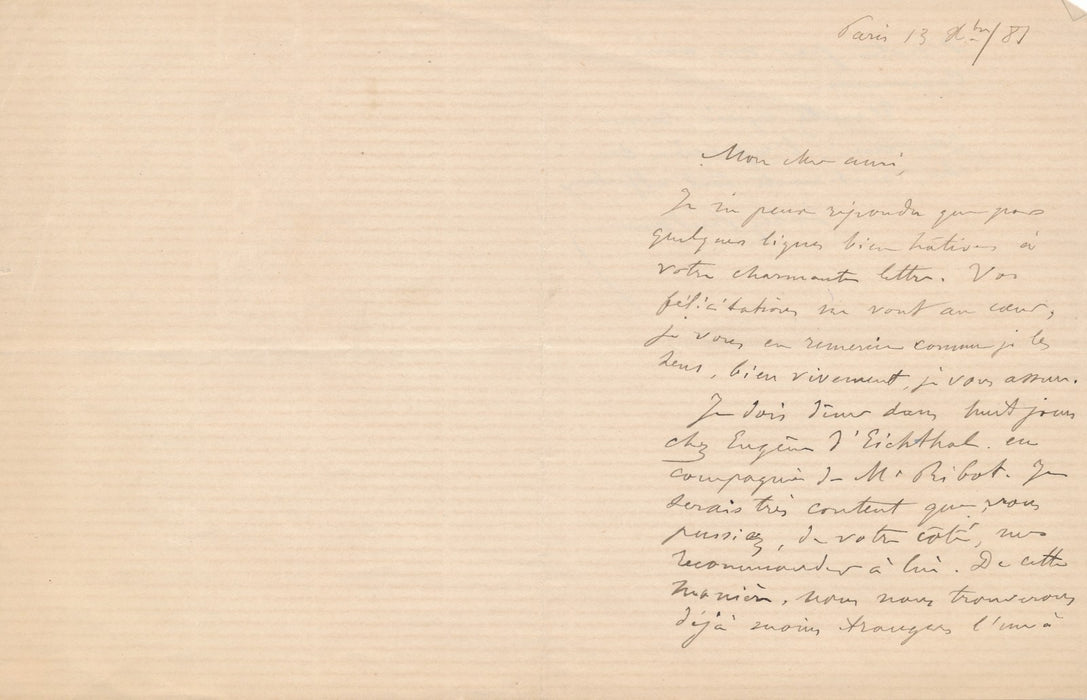 Paris 13 Xbre/81
Mon cher ami,
Je ne peux répondre que par
quelques lignes bien hâtives à
votre charmante lettre. Vos
félicitations me vont au cœur,
je vous en remercie comme je les
sens, bien vivement, je vous assure.
Je dois dîner dans huit jours
chez Eugène d'Eichthal en
compagnie de Mr Ribot. Je
serais très content que vous
pussiez, de votre côté, me
recommander à lui. De cette
manière, nous nous trouverons
déjà moins étrangers l'un à